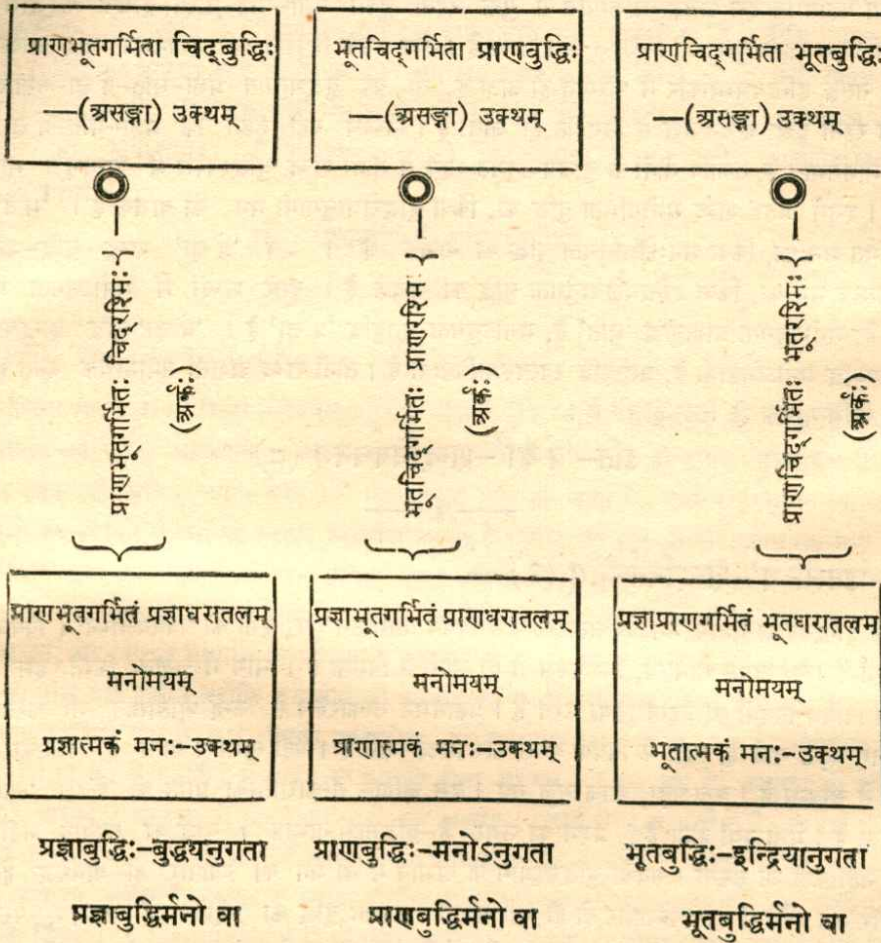 प्राणभूतगर्भिता चिद्बुद्धिः
—(असङ्गा) उक्थम्
भूतचिद्गर्भिता प्राणबुद्धिः
—(असङ्गा) उक्थम्
प्राणचिद्गर्भिता भूतबुद्धिः
—(असङ्गा) उक्थम्
प्राणभूतगर्भितः चिद्रश्मिः
(अर्कः)
भूतचिद्गर्भितः प्राणरश्मिः
(अर्कः)
प्राणचिद्गर्भितः भूतरश्मिः
(अर्कः)
प्राणभूतगर्भितं प्रज्ञाधरातलम्
मनोमयम्
प्रज्ञात्मकं मनः-उक्थम्
प्रज्ञाभूतगर्भितं प्राणधरातलम्
मनोमयम्
प्राणात्मकं मनः-उक्थम्
प्रज्ञाप्राणगर्भितं भूतधरातलम्
मनोमयम्
भूतात्मकं मनः-उक्थम्
प्रज्ञाबुद्धिः-बुद्ध्यनुगता
प्रज्ञाबुद्धिर्मनो वा
प्राणबुद्धिः-मनोऽनुगता
प्राणबुद्धिर्मनो वा
भूतबुद्धिः-इन्द्रियानुगता
भूतबुद्धिर्मनो वा